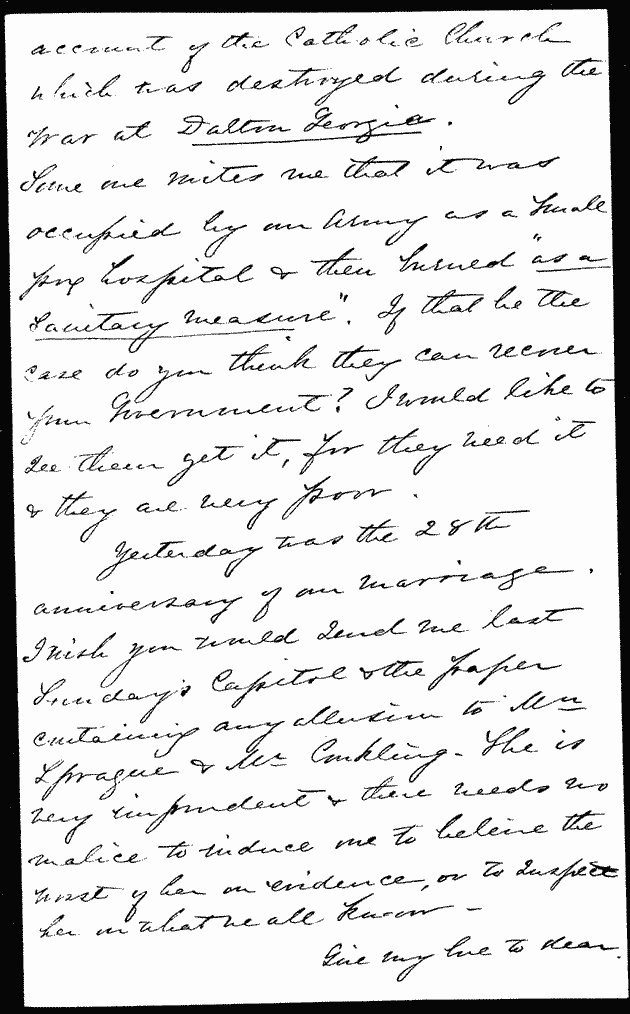 account of the Catholic Church
which was destroyed during the
War at Dalton Georgia.
Some one writes me that it was
occupied by our Army as a small
pox hospital & then burned "as a
Sanitary measure". If that be the
case do you think they can recover
from Government? I would like to
see them get it, for they need it
& they are very poor.
Yesterday was the 28th
anniversary of our marriage.
I wish you would send me last
Sunday's Capitol & the paper
containing any allusion to Mrs
Sprague & Mr Conkling - She is
very imprudent & there needs no
malice to induce me to believe the
worst of her on evidence, or to suspect
her on what we all know -
Give my love to dear